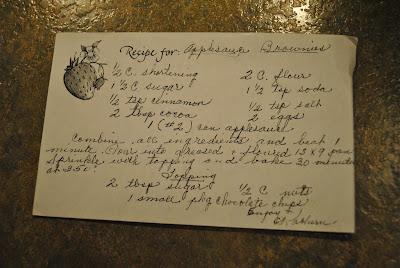 Recipe for: Applesauce Brownies
1/2 C. shortening 2 C. flour
1 1/2 C sugar 1 1/2 tsp soda
1/2 tsp cinnamon 1/2 tsp salt
2 tbsp cocoa 2 eggs
1 (#2) can applesauce
Combine all ingredients and beat 1
minute. Pour into greased + floured 13 x 9 pan
Sprinkle with topping and bake 30 minutes
at 350°.
Topping
2 tbsp sugar 1/2 C. nuts
1 small pkg chocolate chips
Enjoy